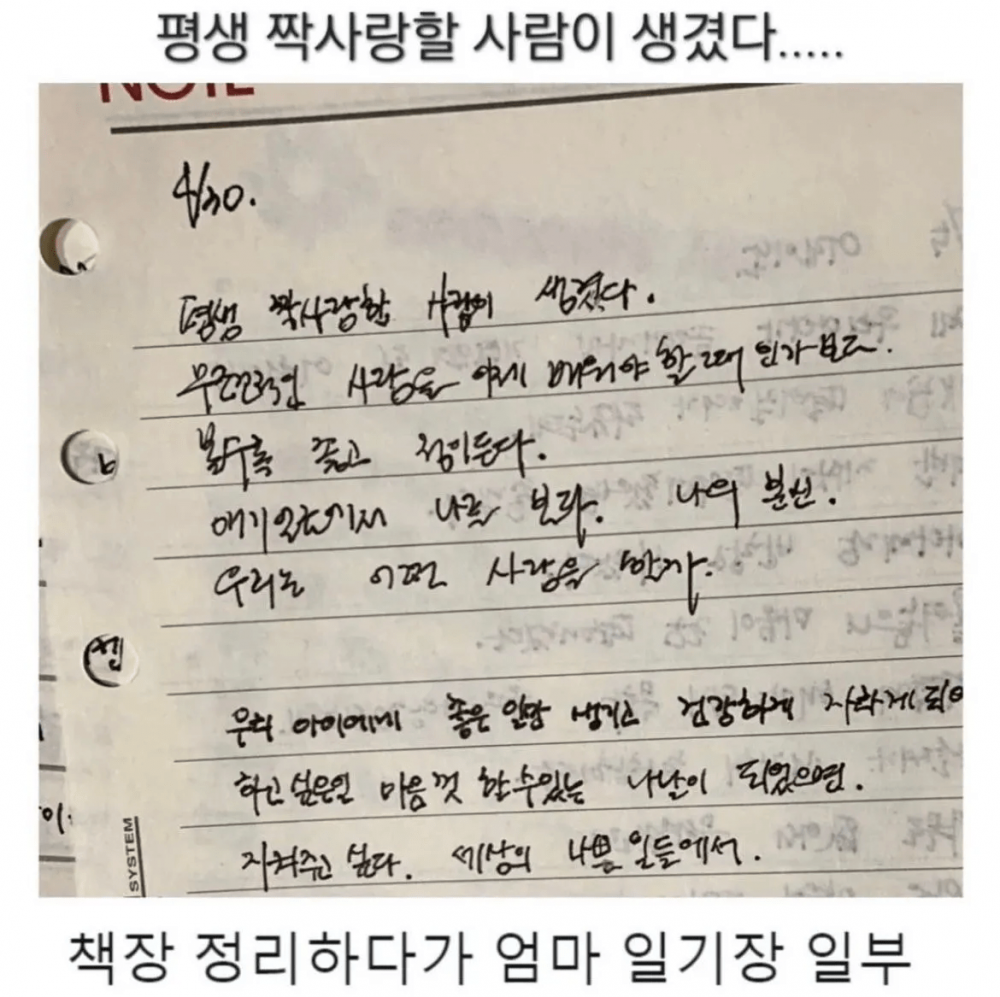 평생 짝사랑할 사람이 생겼다.....
NOTE
4/30.
평생 짝사랑할 사람이 생겼다.
무조건적인 사랑을 이제 배워야 할 때 인가보다.
볼수록 좋고 정이든다.
애기 에게서 나를 보다. 나의 분신.
우리는 어떤 사랑을 할까.
우리 아이에게 좋은 일만 생기고 건강하게 자라게 되어
하고 싶은일 마음껏 할 수 있는 나날이 되었으면.
지켜주고 싶다. 세상의 나쁜 일들에서.
SYSTEM
책장 정리하다가 엄마 일기장 일부